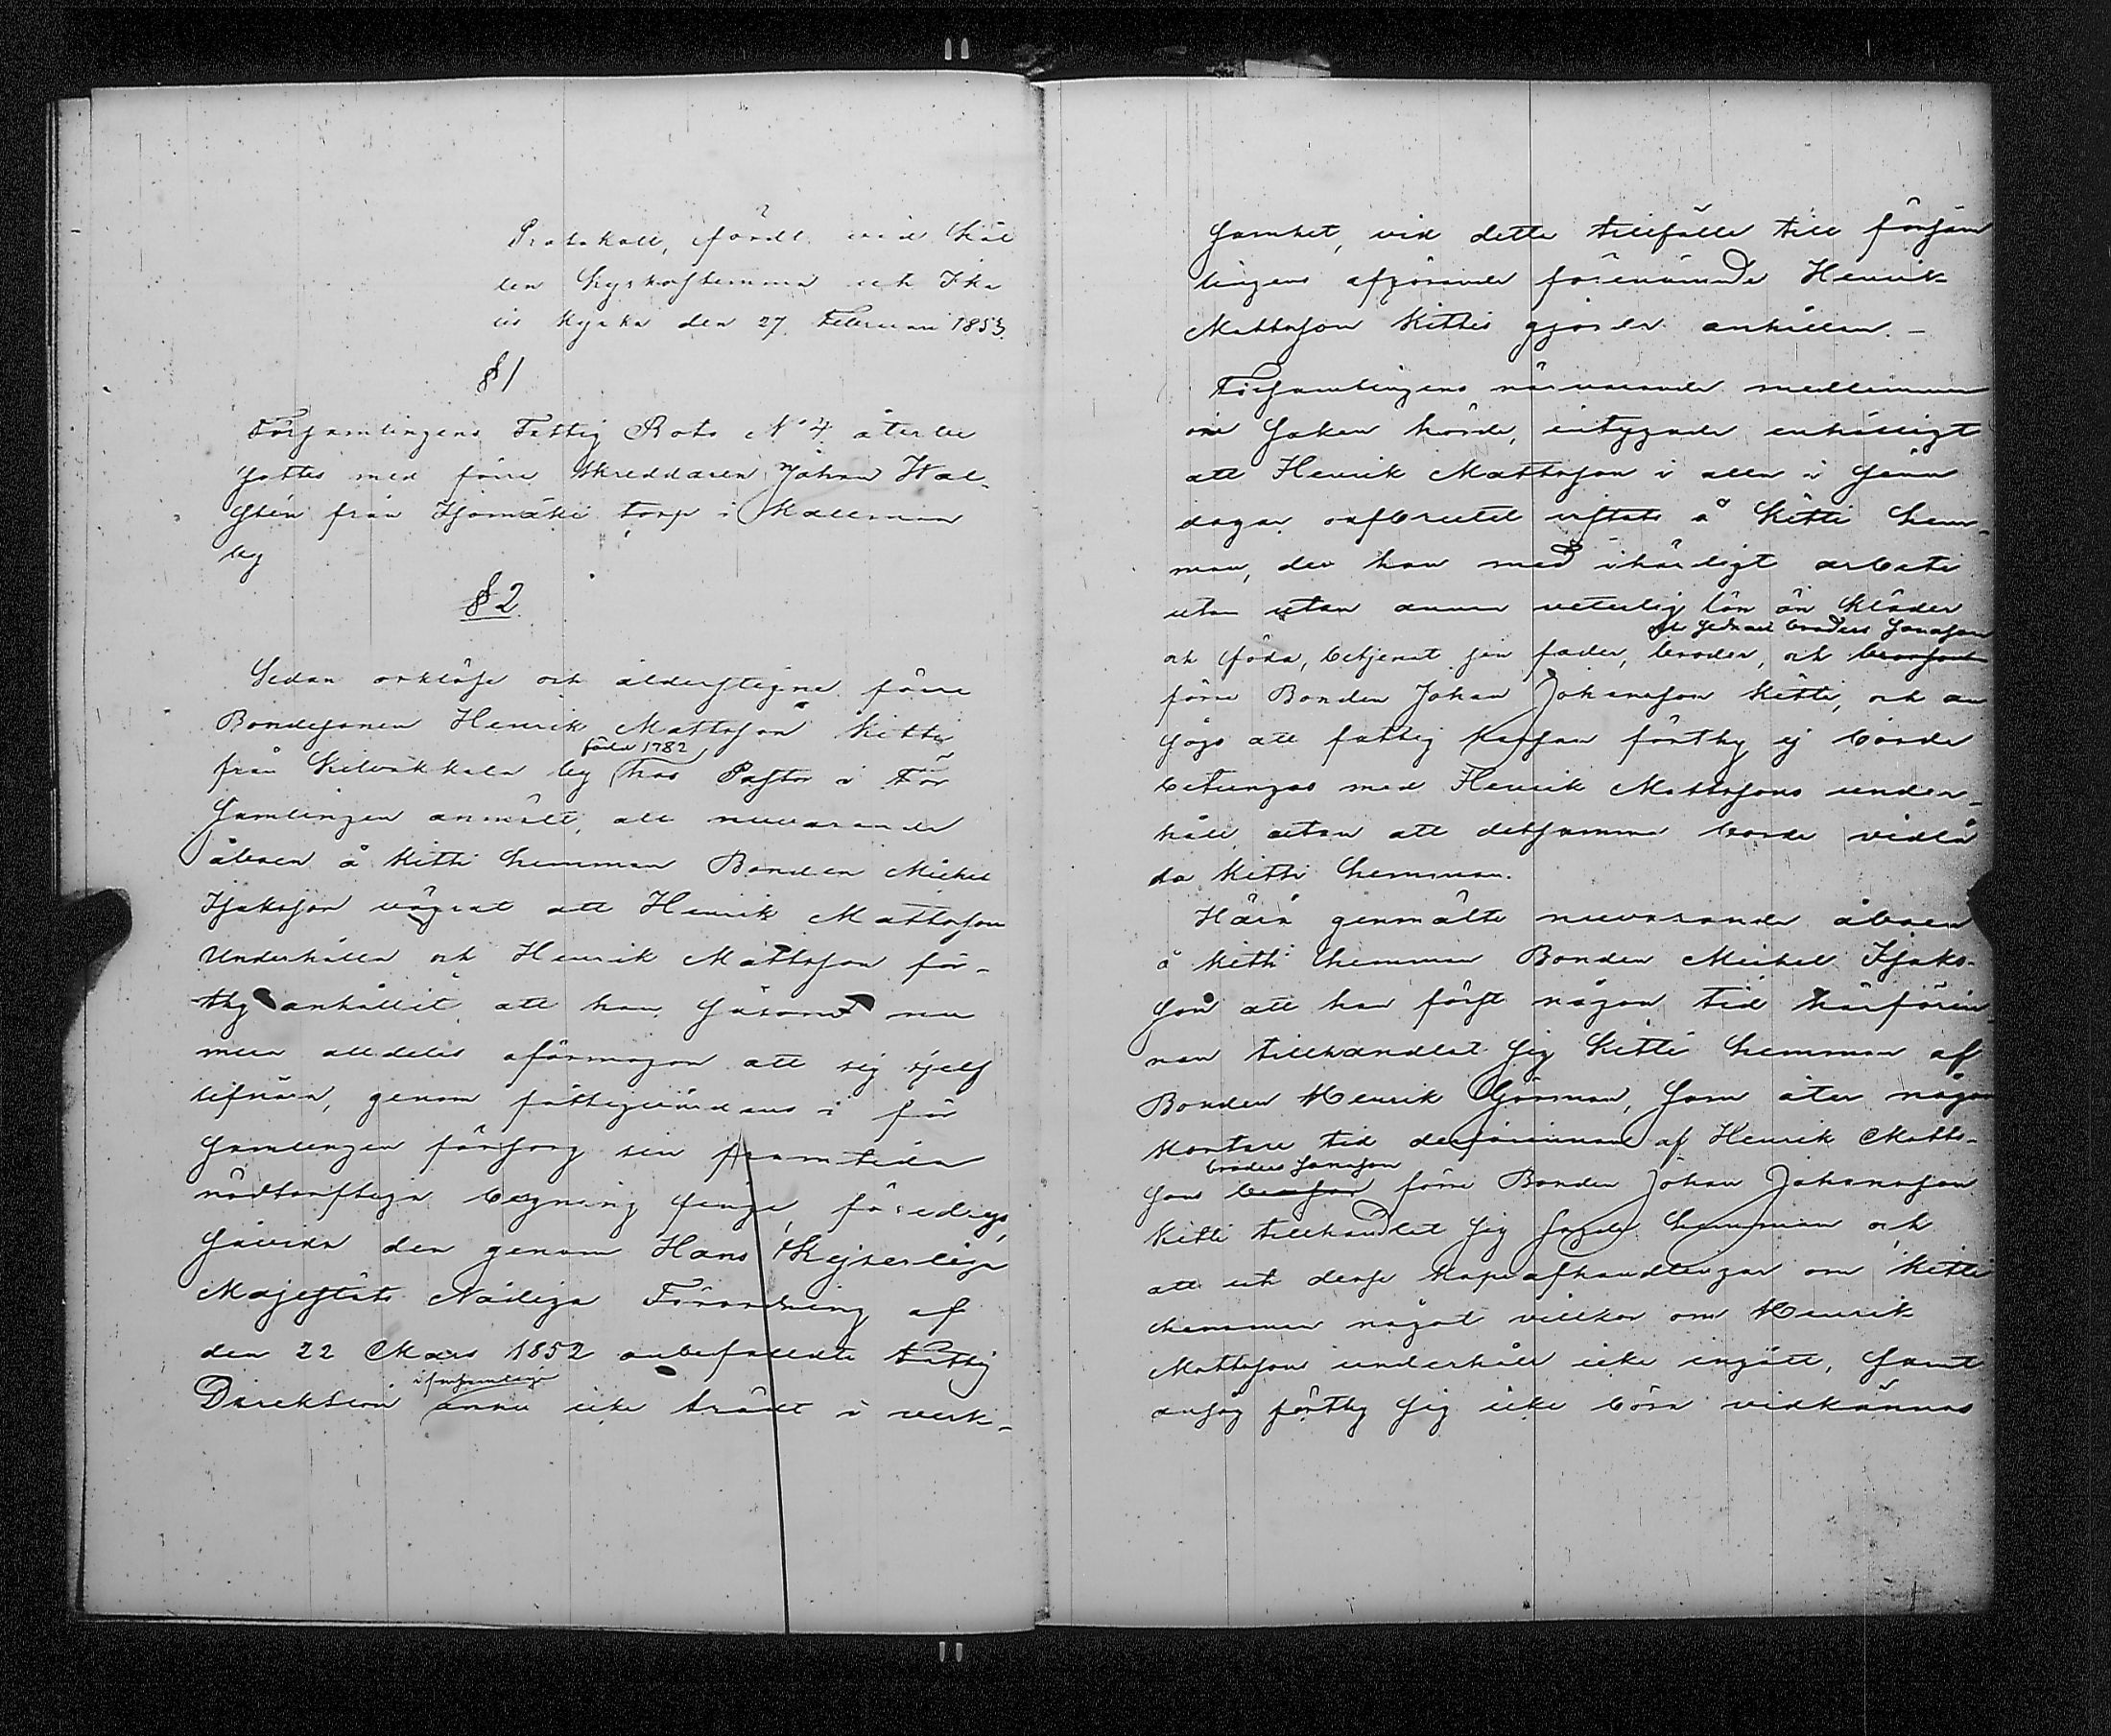 Protokoll, fördt vid hål
len Kyrkostemma uti Ika
lis Kyrka den 27 Februari 1853.
§ 1
Församlingens Fattig Rota N:o 4 återbe
sattes med förre Skreddaren Johan Wal-
stén från Isomäki torp i Kallman
by
§ 2.
Sedan orklöse och ålderstigne förre
Bondesonen Henrik Mattsson Kitti
född 1782
från Kilvakkala by hos Pastor i För
samlingen anmält, att nuvarande
åboen å Kitti hemman Bonden Michel
Isaksson vägrat att Henrik Mattsson
Underhålla och Henrik Mattsson för-
thy anhållit, att han, såsom nu
mera alldeles oförmögen att sig sjelf
lifnära, genom fattigvårdens i för
samlingen försorg sin framtida
nödtorftiga bergning finge, föredrogs,
såvida den genom Hans Kejserliga
Majestäts Nådiga Förordning af
den 22 Mars 1852 anbefalledte Fattig
i församlingen
Direktion ännu icke trädt i verk-
samhet, vid detta tillfälle till försam
lingens afgörande förenämnde Henrik
Mattsson Kittis gjorde anhållan. -
Församlingens närvarande medlemmar
om saken hörde, intygade enhälligt
att Henrik Mattsson i alla i sina
dagar oafbrutet vistats å Kitti hem-
man, der han med ihärdigt arbete
utan utan annan veterlig lön än kläder
och sednast broders sonson
och föda, betjenat sin fader, broder, och brorson
förre Bonden Johan Johansson Kitti, och an
sågs att fattig kassan förthy ej borde
betungas med Henrik Mattssons under-
håll, utan att detsamma borde vidlå
da Kitti hemman.
Härå genmälte nuvarande åboen
å Kitti hemman Bonden Michel Isaks-
son att han först någon tid härförin-
nan tillhandlat sig Kitti hemman af
Bonden Henrik Görsman, som åter någon
kortare tid derförinnan af Henrik Matts-
broders sonson
sons brorson förre Bonden Johan Johansson
Kitti tillhandlat sig sagde hemman och
att uti desse köpeafhandlingar om Kitti
hemman något villkor om Henrik
Mattssons underhåll icke ingått, samt
ansåg förthy sig icke böra vidkännas